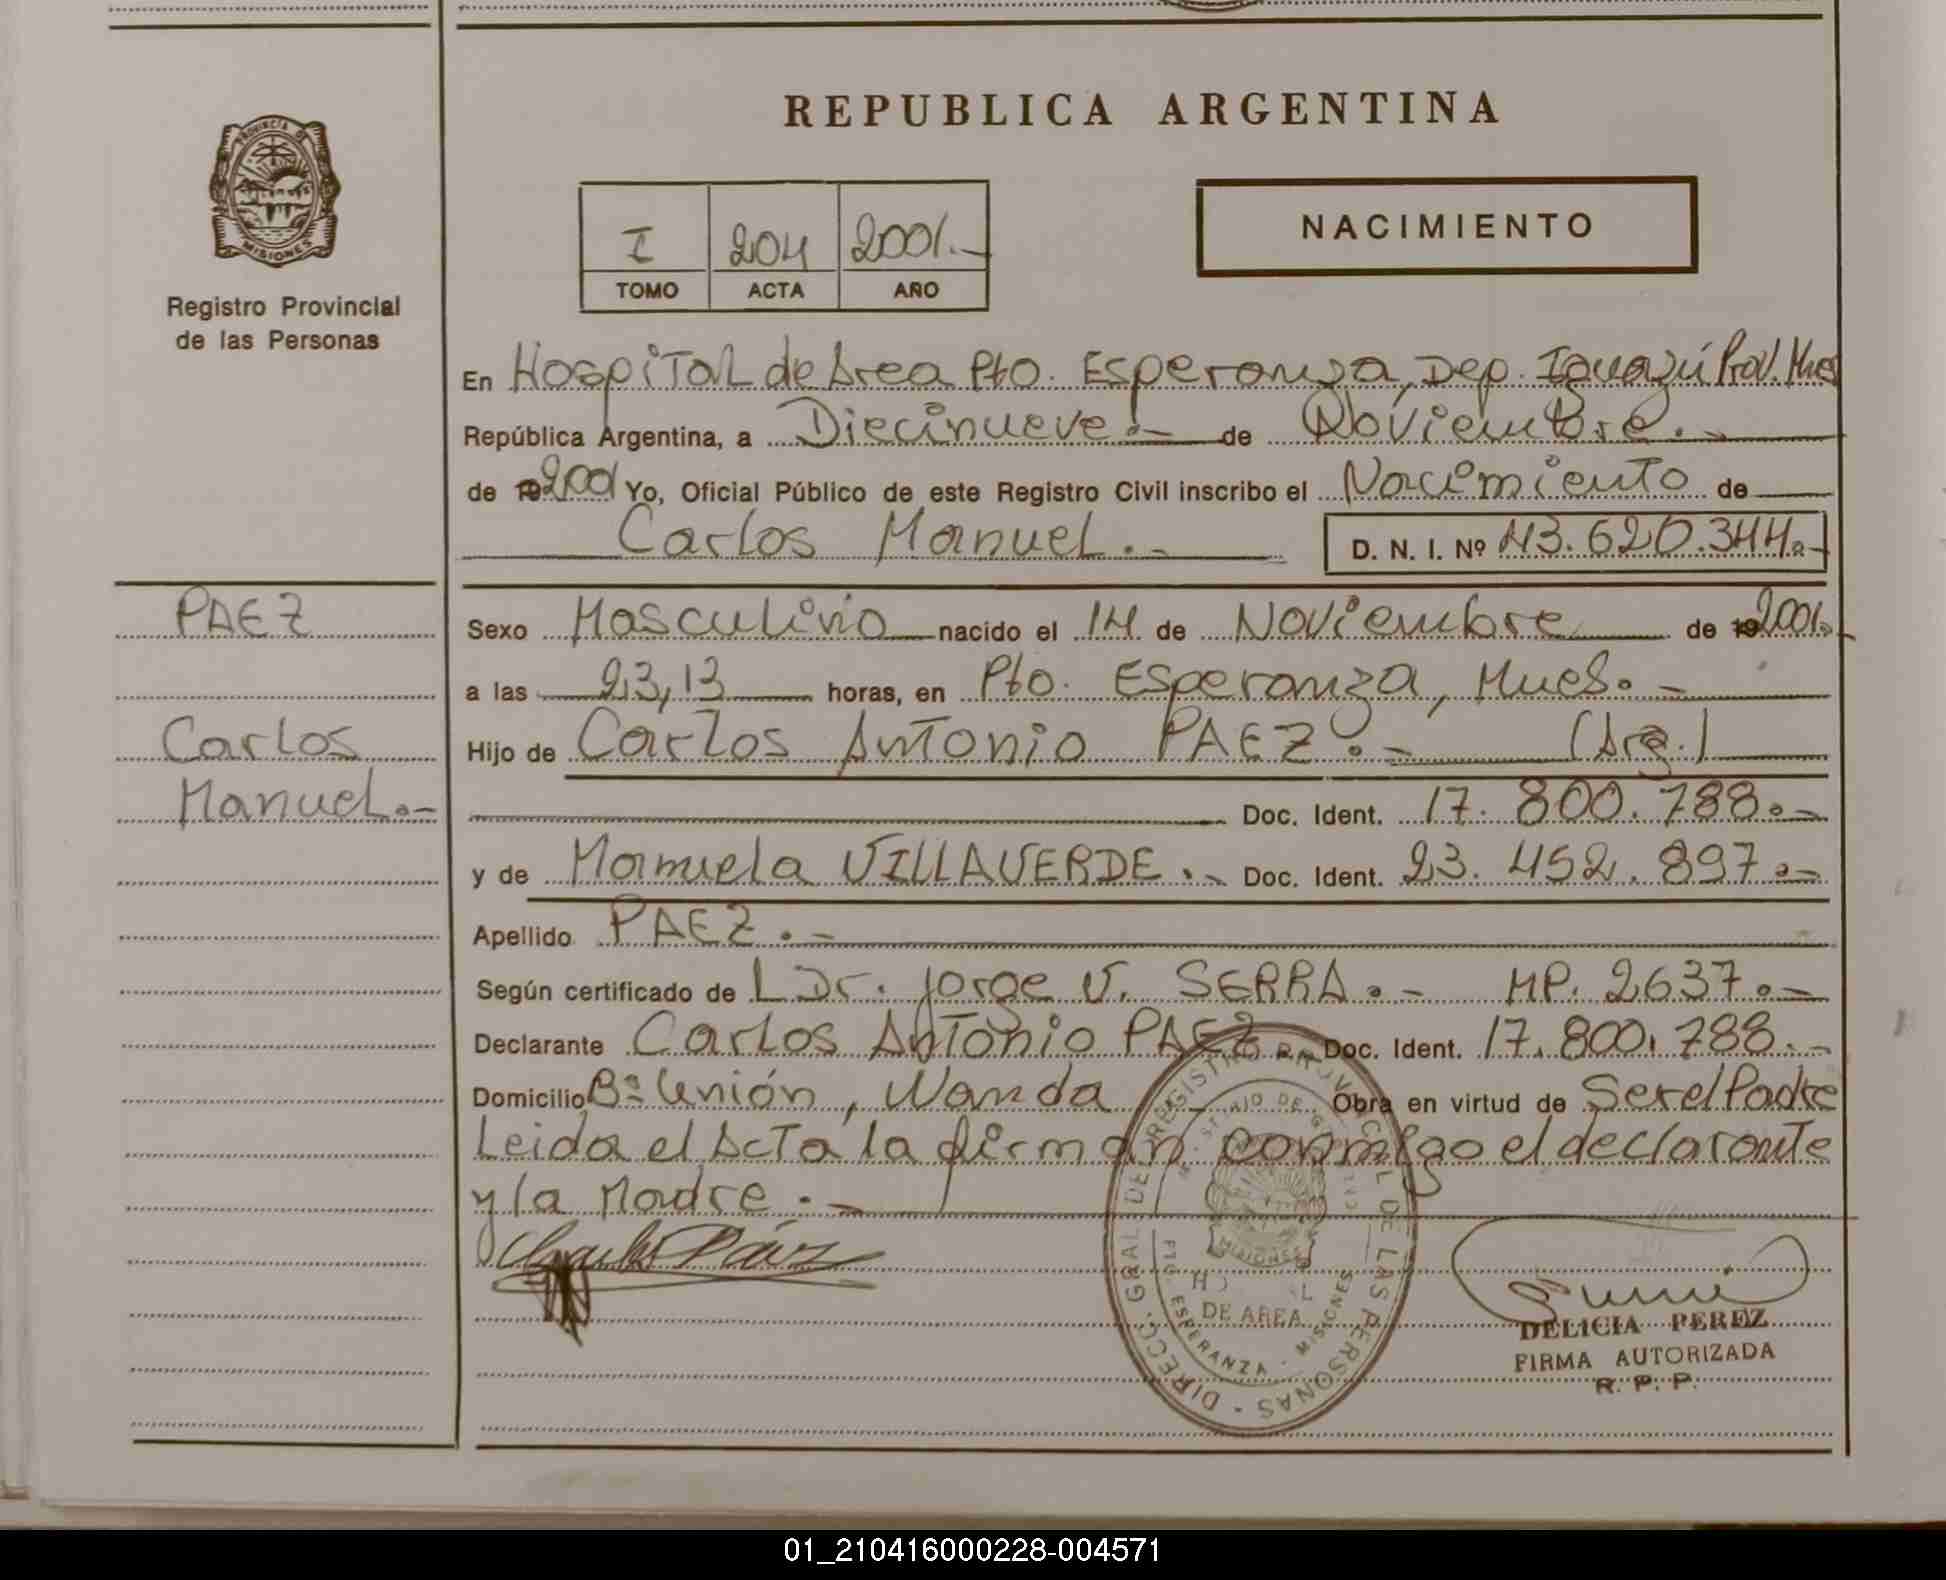 REPUBLICA ARGENTINA
PROVINCIA DE
MISIONES
Registro Provincial
de las Personas
I 204 2001.-
TOMO ACTA AÑO
NACIMIENTO
En Hospital de Area Pto. Esperanza, Dep. Iguazú Prov. Mnes
República Argentina, a Diecinueve.- de Noviembre.-
de 19 2001 Yo, Oficial Público de este Registro Civil inscribo el Nacimiento de
Carlos Manuel.- D. N. I. Nº 43.620.344.-
PAEZ
Carlos
Manuel.-
Sexo Masculino nacido el 14 de Noviembre de 19 2001.-
a las 23,13 horas, en Pto. Esperanza, Mnes.-
Hijo de Carlos Antonio PAEZ.- (Arg.)
Doc. Ident. 17.800.788.-
y de Manuela VILLAVERDE.- Doc. Ident. 23.452.897.-
Apellido PAEZ.-
Según certificado de L Dr. Jorge V. SERRA.- MP. 2637.-
Declarante Carlos Antonio PAEZ.- Doc. Ident. 17.800.788.-
Domicilio Bº Unión, Wanda Obra en virtud de Ser el Padre
Leida el Acta la firman conmigo el declarante
y la Madre.-
DIRECC. GRAL. DE REGISTRO PROVINCIAL DE LAS PERSONAS
MISIONES
DE AREA
PTO. ESPERANZA - MISIONES
DELICIA PEREZ
FIRMA AUTORIZADA
R. P. P.
01_210416000228-004571